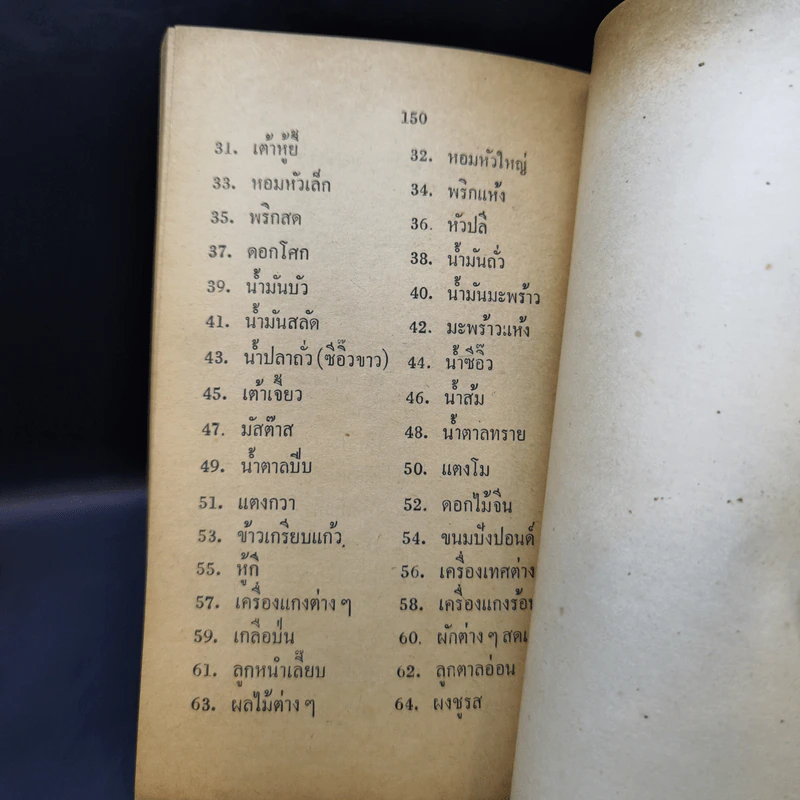 150
31. เต้าหู้ยี้ 32. หอมหัวใหญ่
33. หอมหัวเล็ก 34. พริกแห้ง
35. พริกสด 36. หัวปลี
37. ดอกโศก 38. น้ำมันถั่ว
39. น้ำมันบัว 40. น้ำมันมะพร้าว
41. น้ำมันสลัด 42. มะพร้าวแห้ง
43. น้ำปลาถั่ว (ซีอิ๊วขาว) 44. น้ำซีอิ๊ว
45. เต้าเจี้ยว 46. น้ำส้ม
47. มัสต๊าส 48. น้ำตาลทราย
49. น้ำตาลปีบ 50. แตงโม
51. แตงกวา 52. ดอกไม้จีน
53. ข้าวเกรียบแก้ว 54. ขนมปังปอนด์
55. หู้กี่ 56. เครื่องเทศต่าง
57. เครื่องแกงต่าง ๆ 58. เครื่องแกงร้อน
59. เกลือป่น 60. ผักต่าง ๆ สด
61. ลูกหนำเลี๊ยบ 62. ลูกตาลอ่อน
63. ผลไม้ต่าง ๆ 64. ผงชูรส